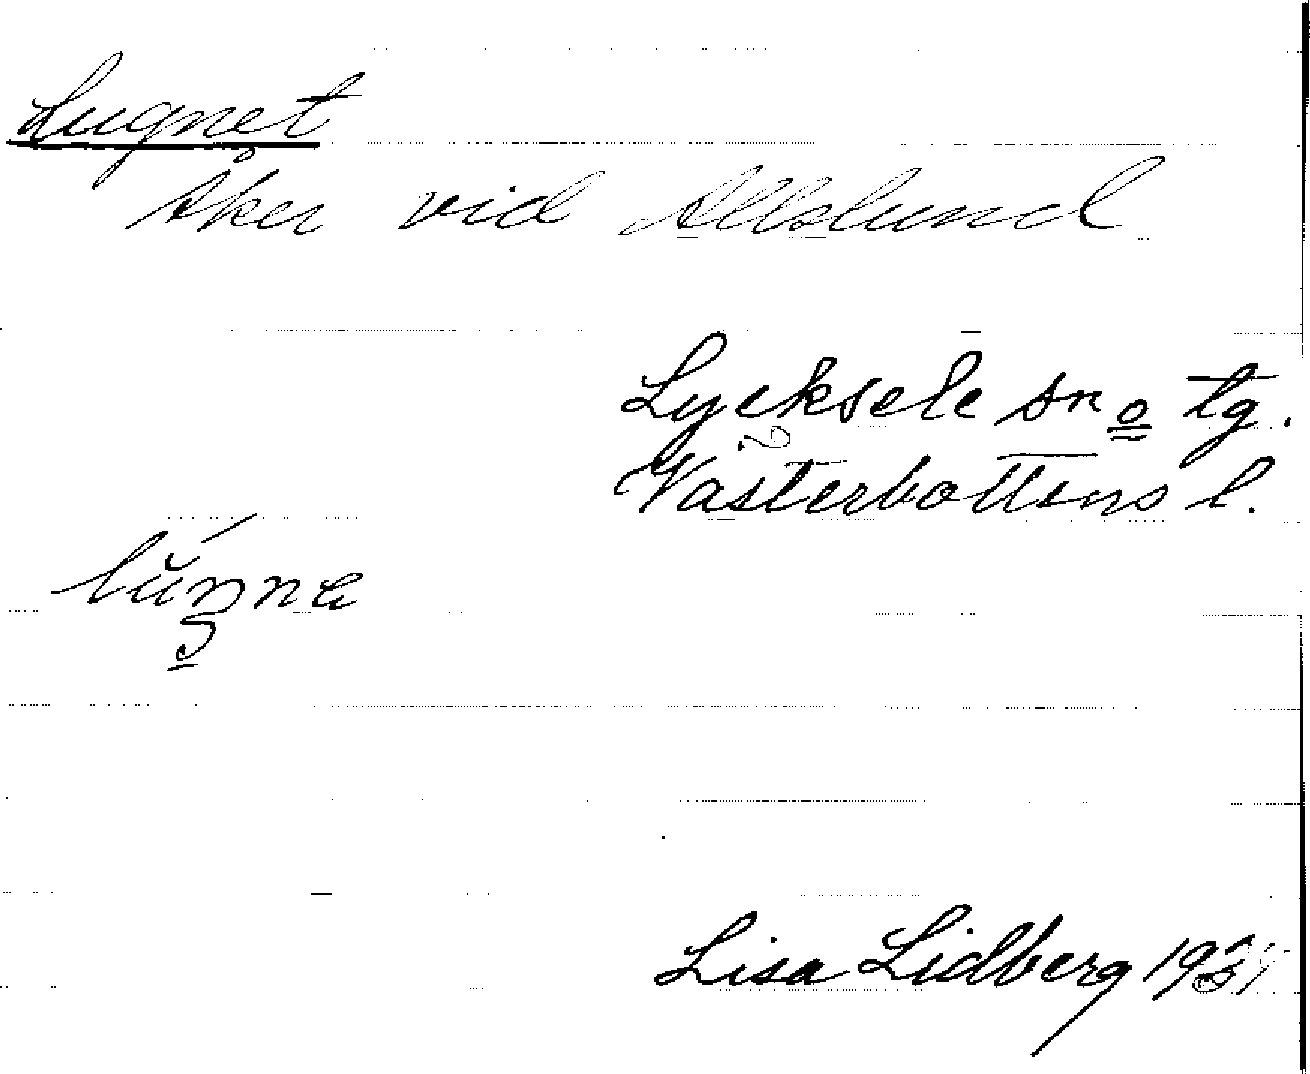 Lugnet
Åker vid Allslund
Lycksele sn o tg.
Västerbottens l.
Lisa Lidberg